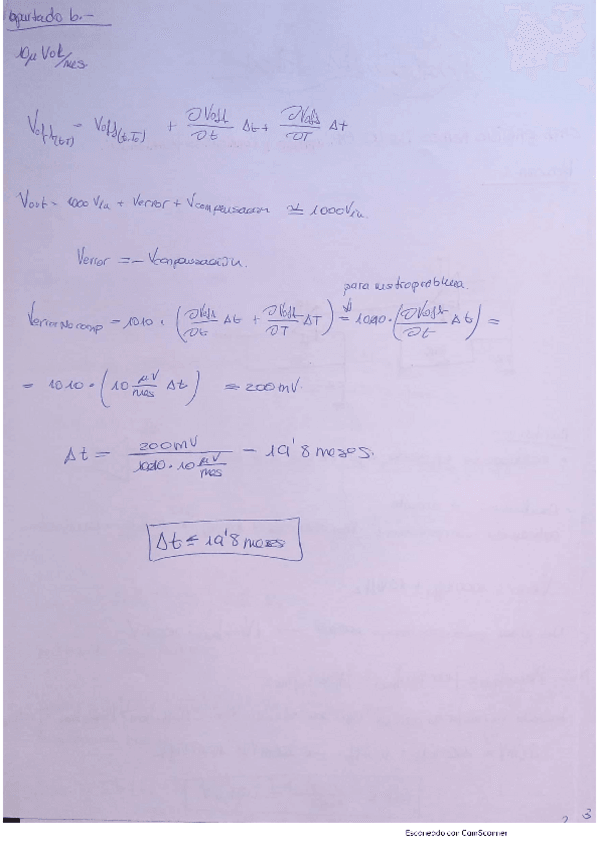 Apartado b.-
10μ Volt/mes
Voff(t,T) = Voff(t,To) + ∂Voff/∂t Δt + ∂Voff/∂T Δt
Vout = 1000 Vin + Verror + Vcompensacion ≃ 1000Vin
Verror = - Vcompensación.
para nustro problema.
Verror No comp = 1010 · (∂Voff/∂t Δt + ∂Voff/∂T ΔT) = 1010 · (∂Voff/∂t Δt) =
= 1010 · (10 μV/mes Δt) = 200mV.
Δt = 200mV / 1010 · 10 μV/mes = 19'8 meses.
Δt ≤ 19'8 meses
3
Escaneado con CamScanner